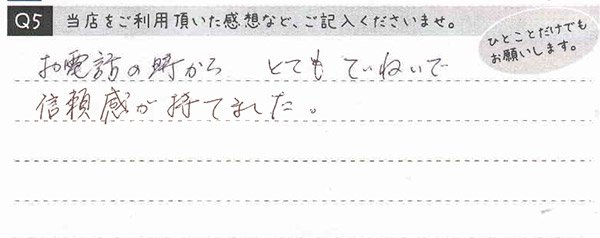 Q5 当店をご利用頂いた感想など、ご記入くださいませ。
ひとことだけでも
お願いします。
お電話の時から とても ていねいで
信頼感が持てました。